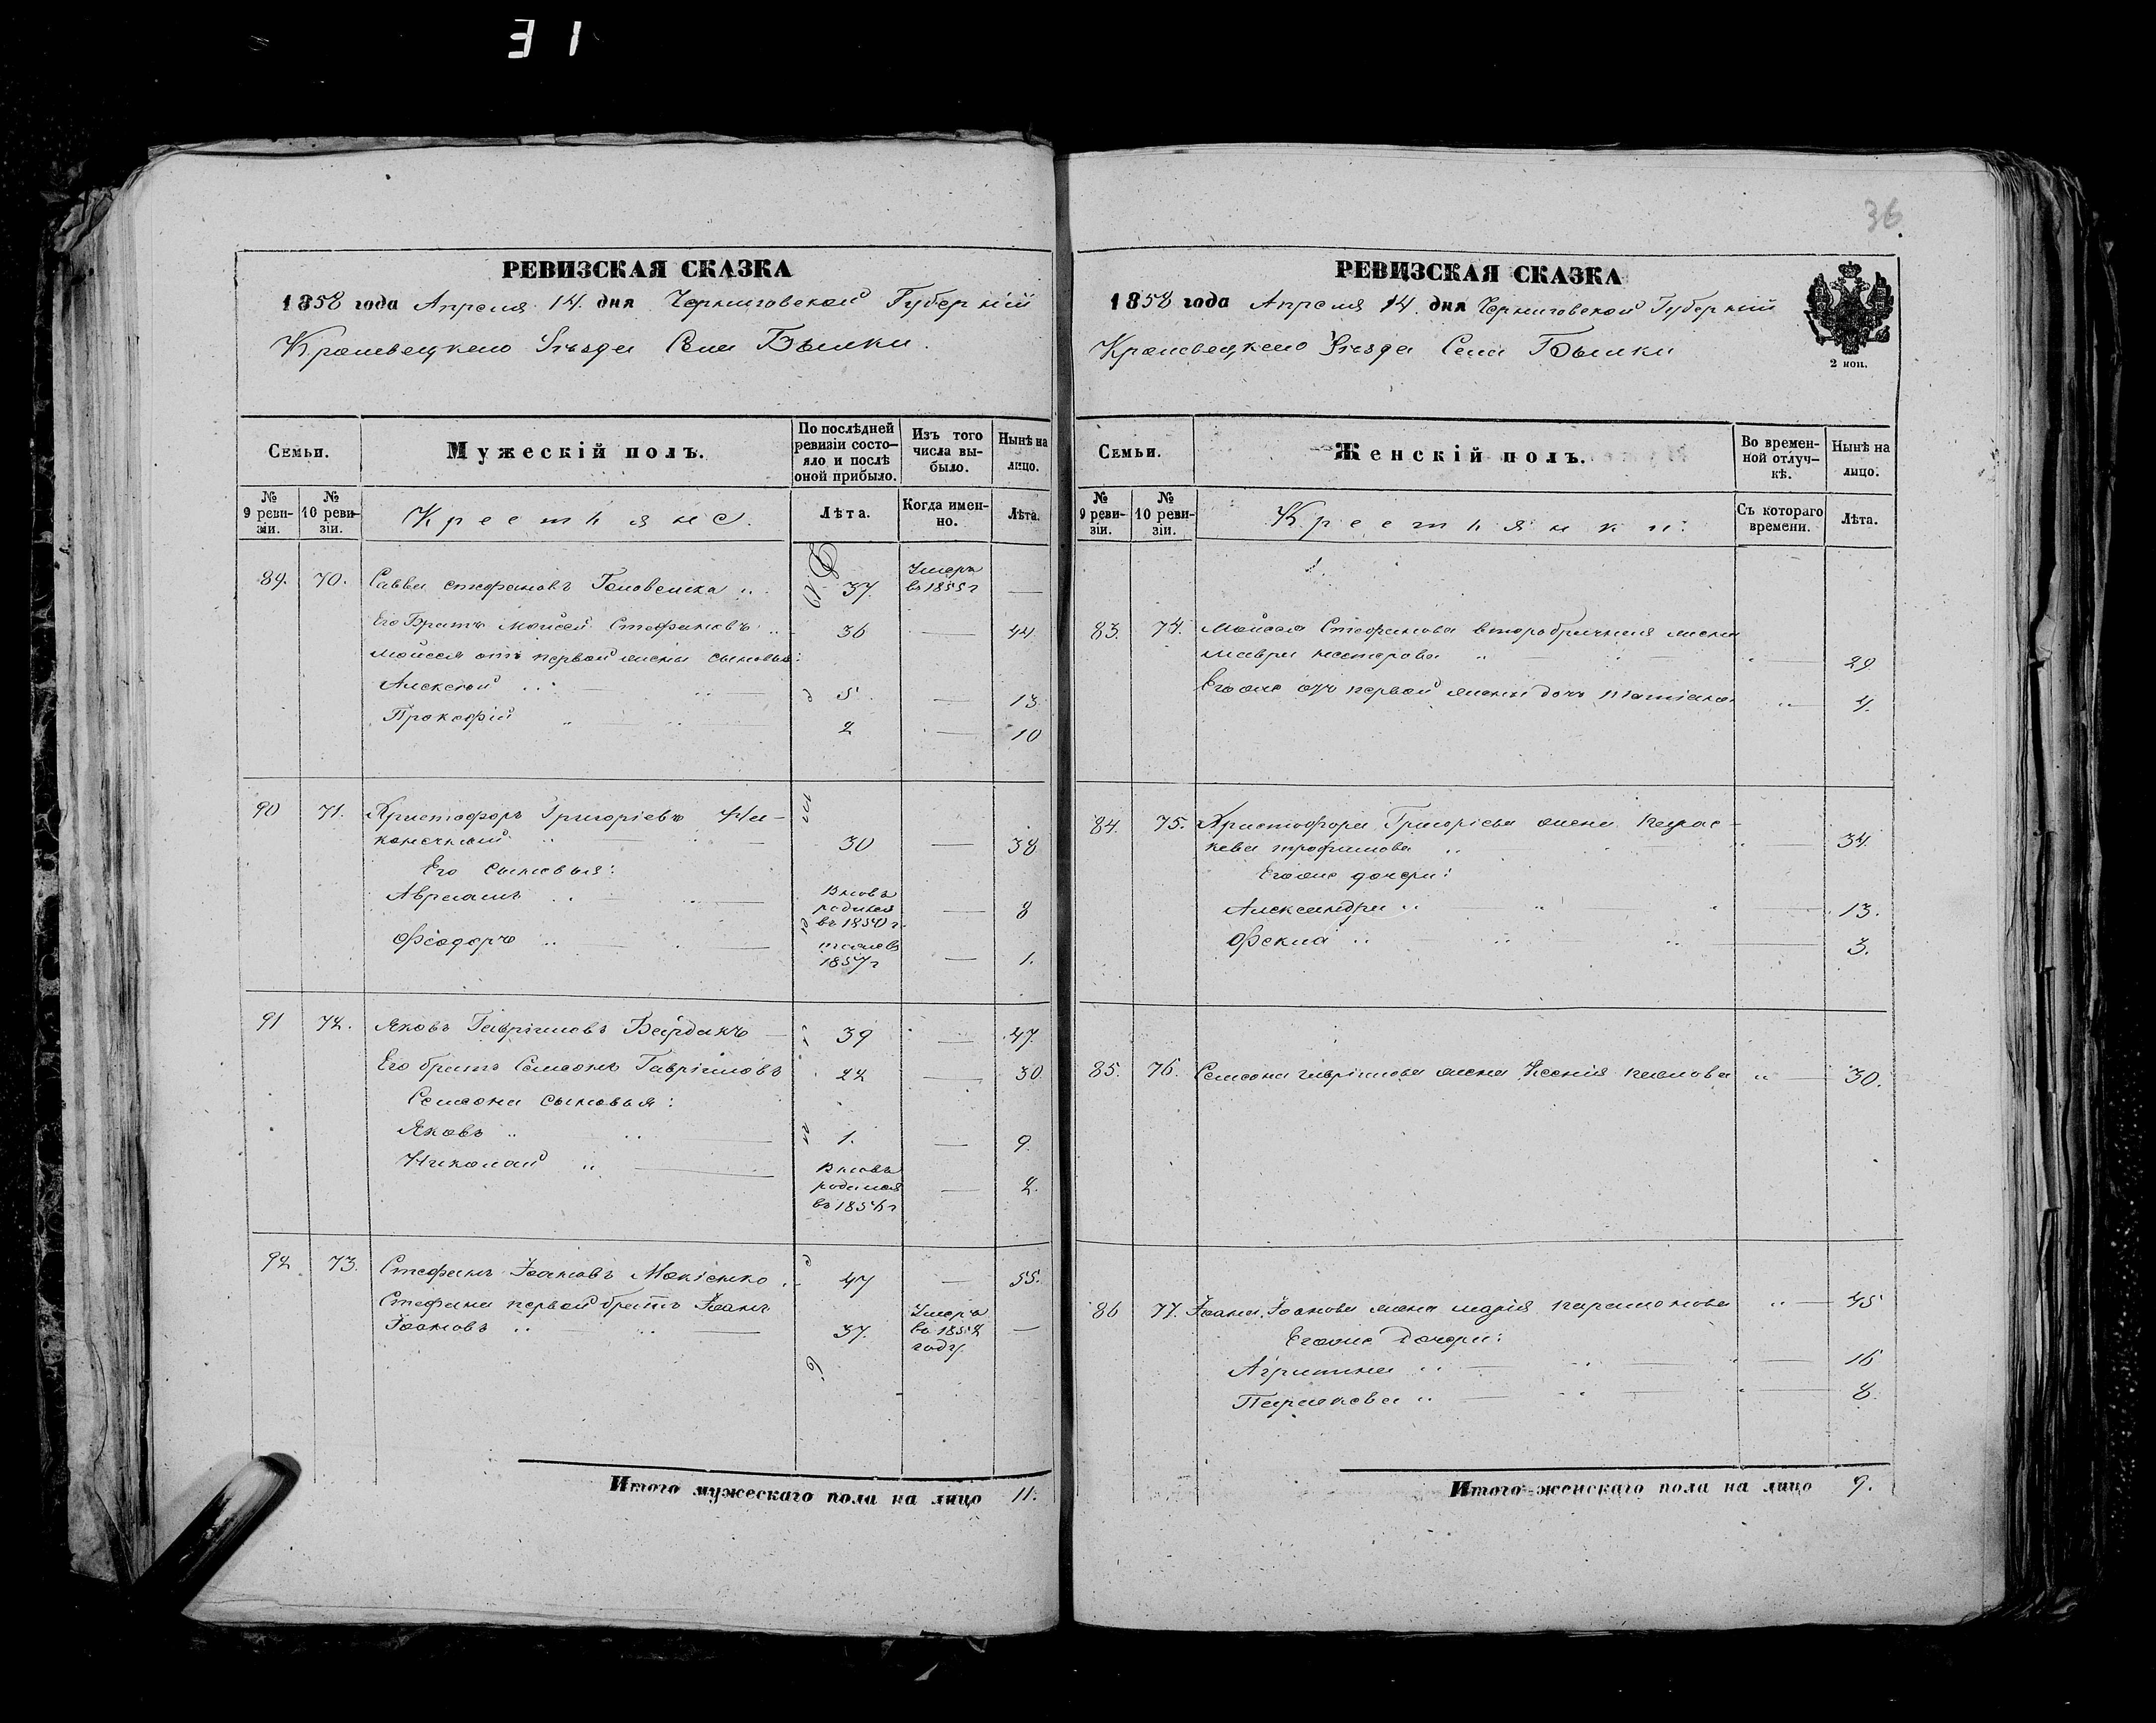 31
36
РЕВИЗСКАЯ СКАЗКА
1858 года Апреля 14. дня Черниговской Губерніи
Кролевецкаго Уѣзда Села Быики.
Семьи.
Мужескій полъ.
По послѣдней ревизіи состо-
яло и послѣ
оной прибыло.
Изъ того
числа вы-
было.
Нынѣ на
лицо.
№
9 реви-
зіи.
№
10 реви-
зіи.
Крестьяне.
Лѣта.
Когда имен-
но.
Лѣта.
89. 70. Савва Стефановъ 37. Умеръ
въ 1855 г —
Его Братъ Моисей Стефановъ 36 — 44.
Моисея отъ первой жены сыновья:
Алексѣй 5 — 13.
Прокофій 2 — 10
90 71. Христофоръ Григоріевъ На-
конечный 30 — 38
Его сыновья:
Авраамъ Вновь
родился
въ 1850 г. — 8
Феодоръ тоже въ
1857 г — 1.
91 72. Яковъ Гавріиловъ Барданъ — 39 — 47.
Его братъ Семеонъ Гавріиловъ 22 — 30
Семеона сыновья:
Яковъ 1. — 9.
Николай Вновь
родился
въ 1856 г — 2.
92 73. Стефанъ Іоановъ Мокіенко 47 — 55.
Стефана первой братъ Іоанъ
Іоановъ 37. Умеръ
въ 1852
году. —
Итого мужескаго пола на лицо 11.
РЕВИЗСКАЯ СКАЗКА
1858 года Апреля 14. дня Черниговской Губерніи
Кролевецкаго Уѣзда Села Быики
2 коп.
Семьи.
Женскій полъ.
Во времен-
ной отлуч-
кѣ.
Нынѣ на
лицо.
№
9 реви-
зіи.
№
10 реви-
зіи.
Крестьянки:
Съ котораго
времени.
Лѣта.
83. 74. Моисея Стефанова второбрачная жена
Мавра Нестерова — 29
Его же отъ первой жены дочь Татіана — 4.
84. 75. Христофора Григоріева жена Парас-
кева Трофимова — 34.
Его же дочери:
Александра — 13.
Фекла — 3.
85. 76. Семеона Гавріилова жена Ксенія Павлова — 30.
86 77. Іоана Іоанова жена Марія Парамонова — 45
Его же дочери:
Агрипина — 16
Параскева — 8.
Итого женскаго пола на лицо 9.